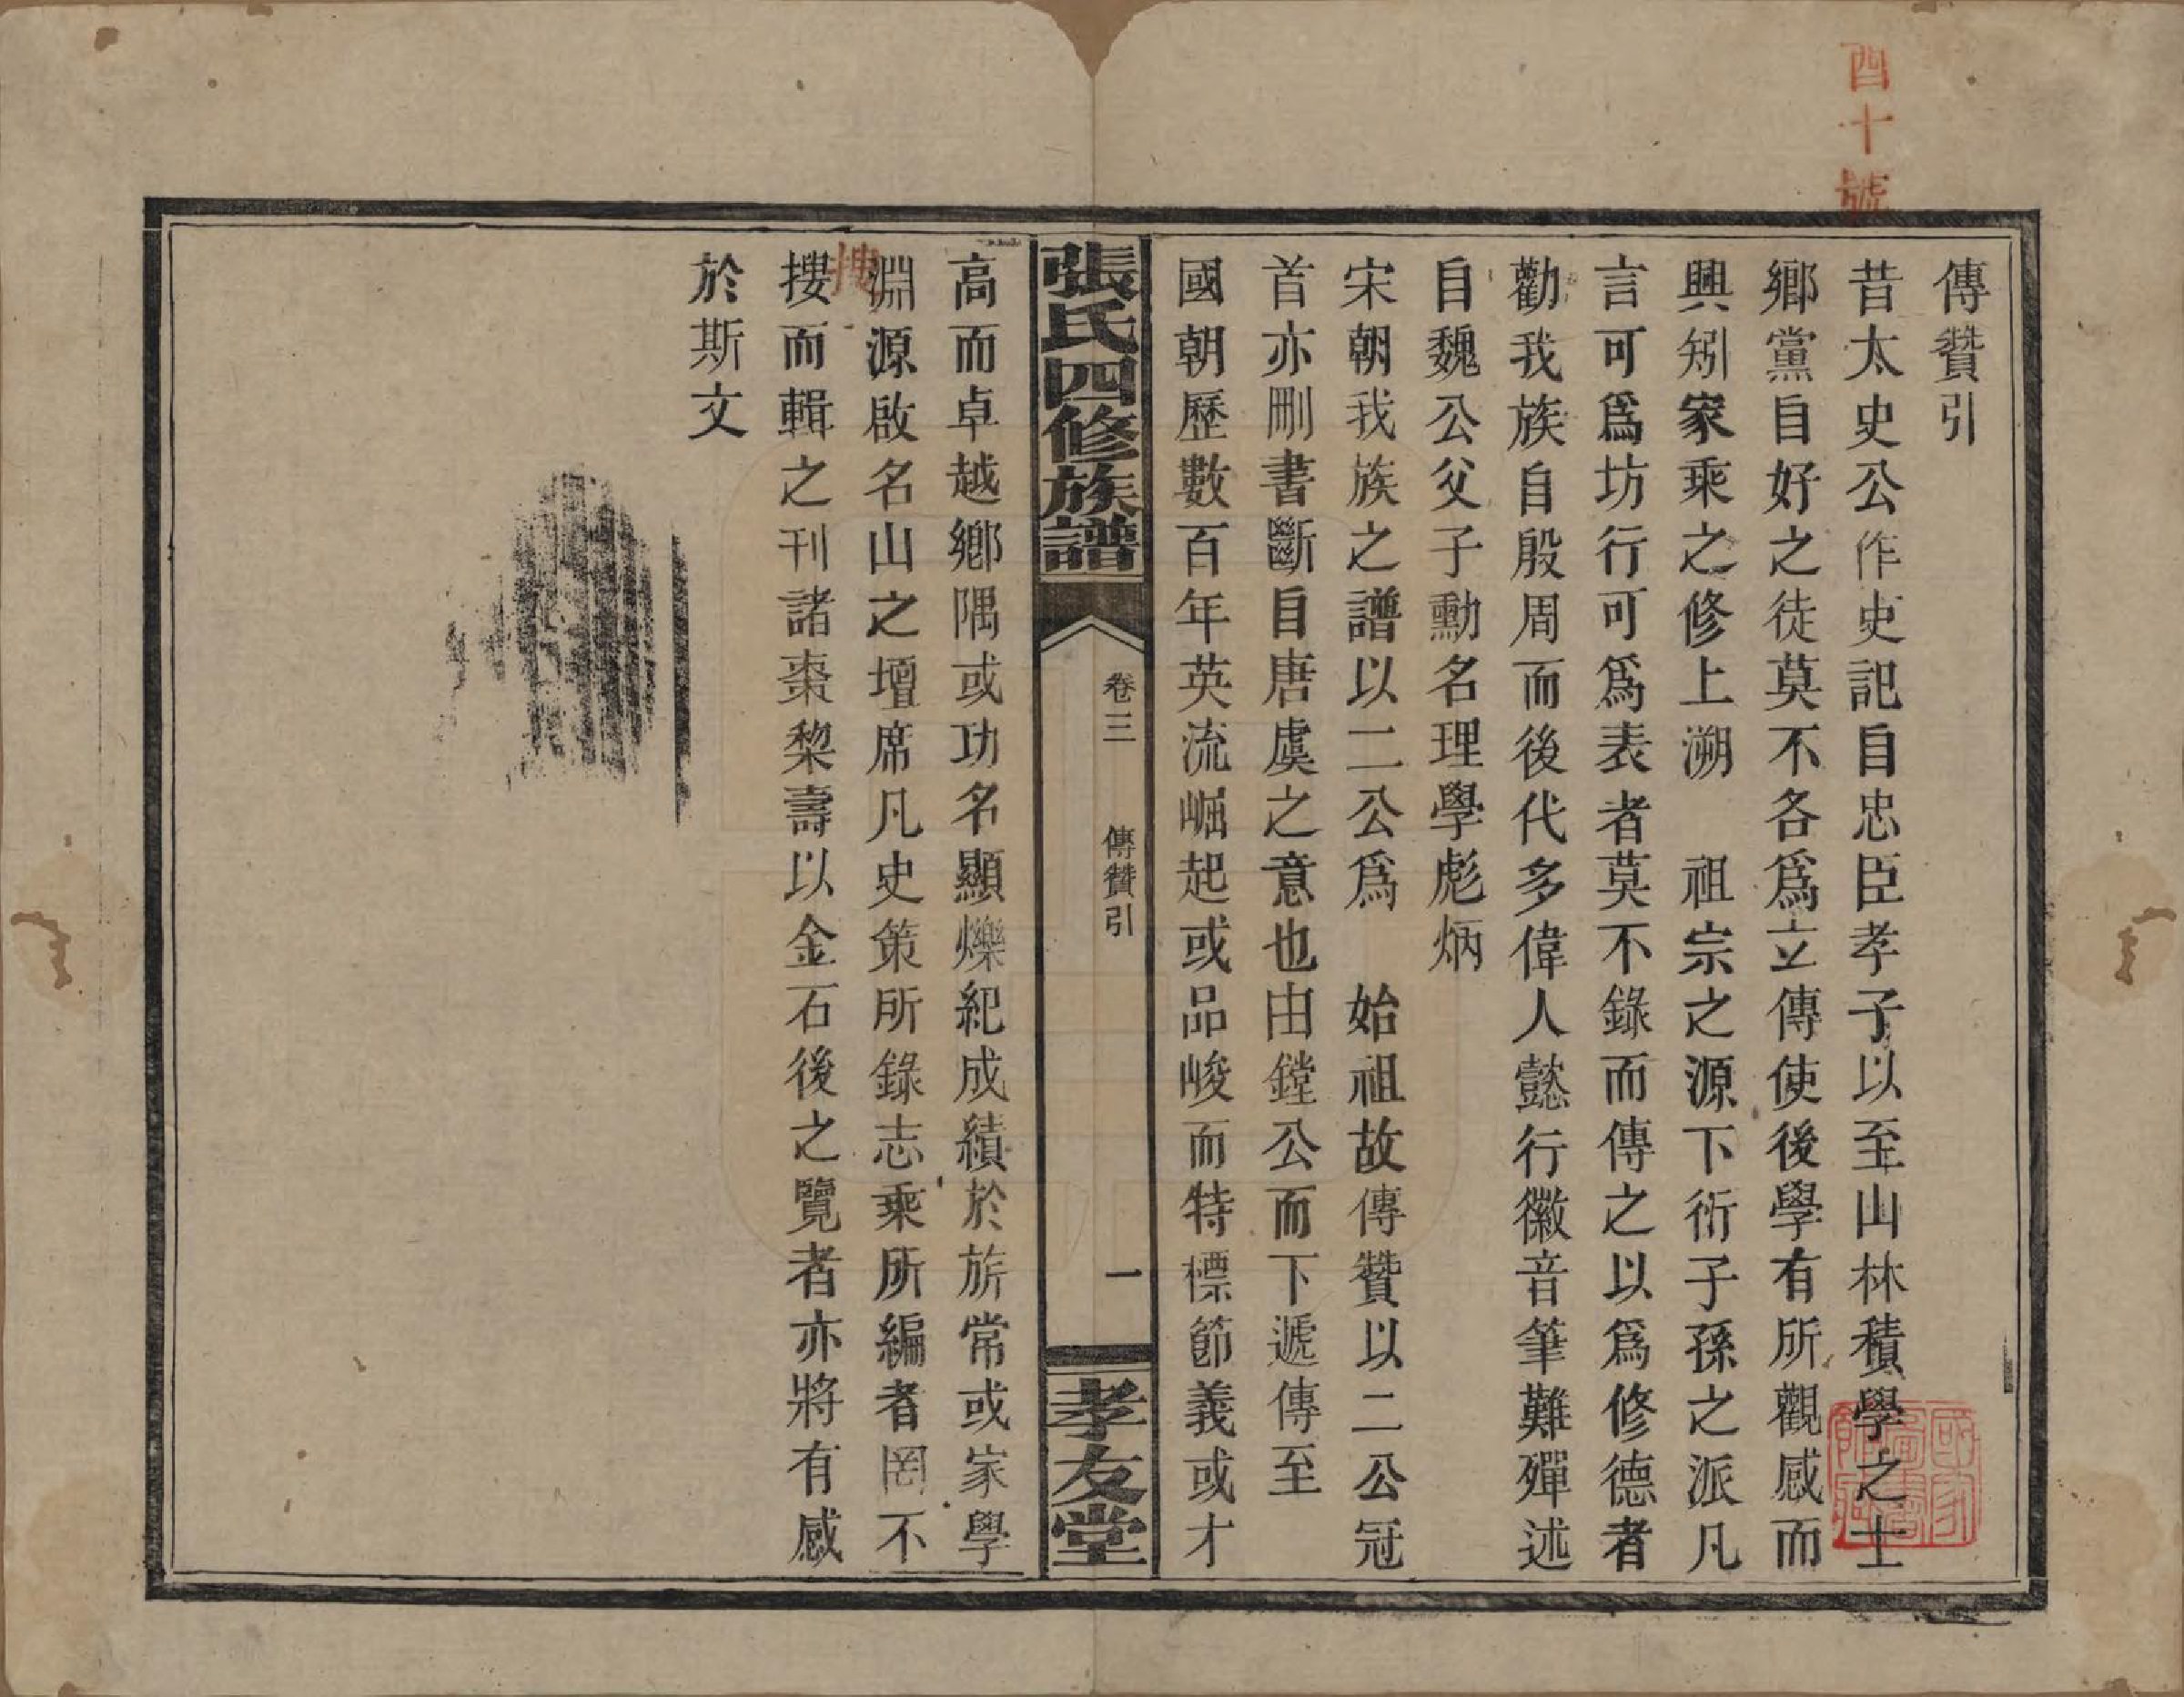 四十號
傳贊引
昔太史公作史記自忠臣孝子以至山林積學之士
鄉黨自好之徒莫不各爲立傳使後學有所觀感而
興矧家乘之修上溯　祖宗之源下衍子孫之派凡
言可爲坊行可爲表者莫不錄而傳之以爲修德者
勸我族自殷周而後代多偉人懿行徽音筆難殫述
自魏公父子勳名理學彪炳
宋朝我族之譜以二公爲　始祖故傳贊以二公冠
首亦刪書斷自唐虞之意也由鏜公而下遞傳至
國朝歷數百年英流崛起或品峻而特標節義或才
張氏四修族譜
卷三　傳贊引
一
孝友堂
高而卓越鄉隅或功名顯爍紀成績於旂常或家學
淵源啟名山之壇席凡史策所錄志乘所編者罔不
摟而輯之刊諸棗棃壽以金石後之覽者亦將有感
於斯文